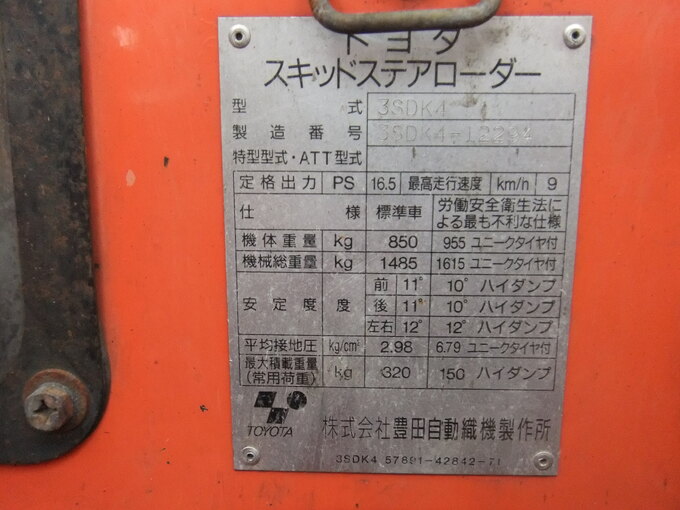 トヨタ
スキッドステアローダー
型式 3SDK4
製造番号 3SDK4-12294
特型型式・ATT型式
定格出力 PS 16.5 最高走行速度 km/h 9
仕様 標準車 労働安全衛生法による最も不利な仕様
機体重量 kg 850 955 ユニークタイヤ付
機械総重量 kg 1485 1615 ユニークタイヤ付
安定度 度 前 11° 10° ハイダンプ
後 11° 10° ハイダンプ
左右 12° 12° ハイダンプ
平均接地圧 kg/cm² 2.98 6.79 ユニークタイヤ付
最大積載重量(常用荷重) kg 320 150 ハイダンプ
TOYOTA 株式会社豊田自動織機製作所
3SDK4 57891-42842-71